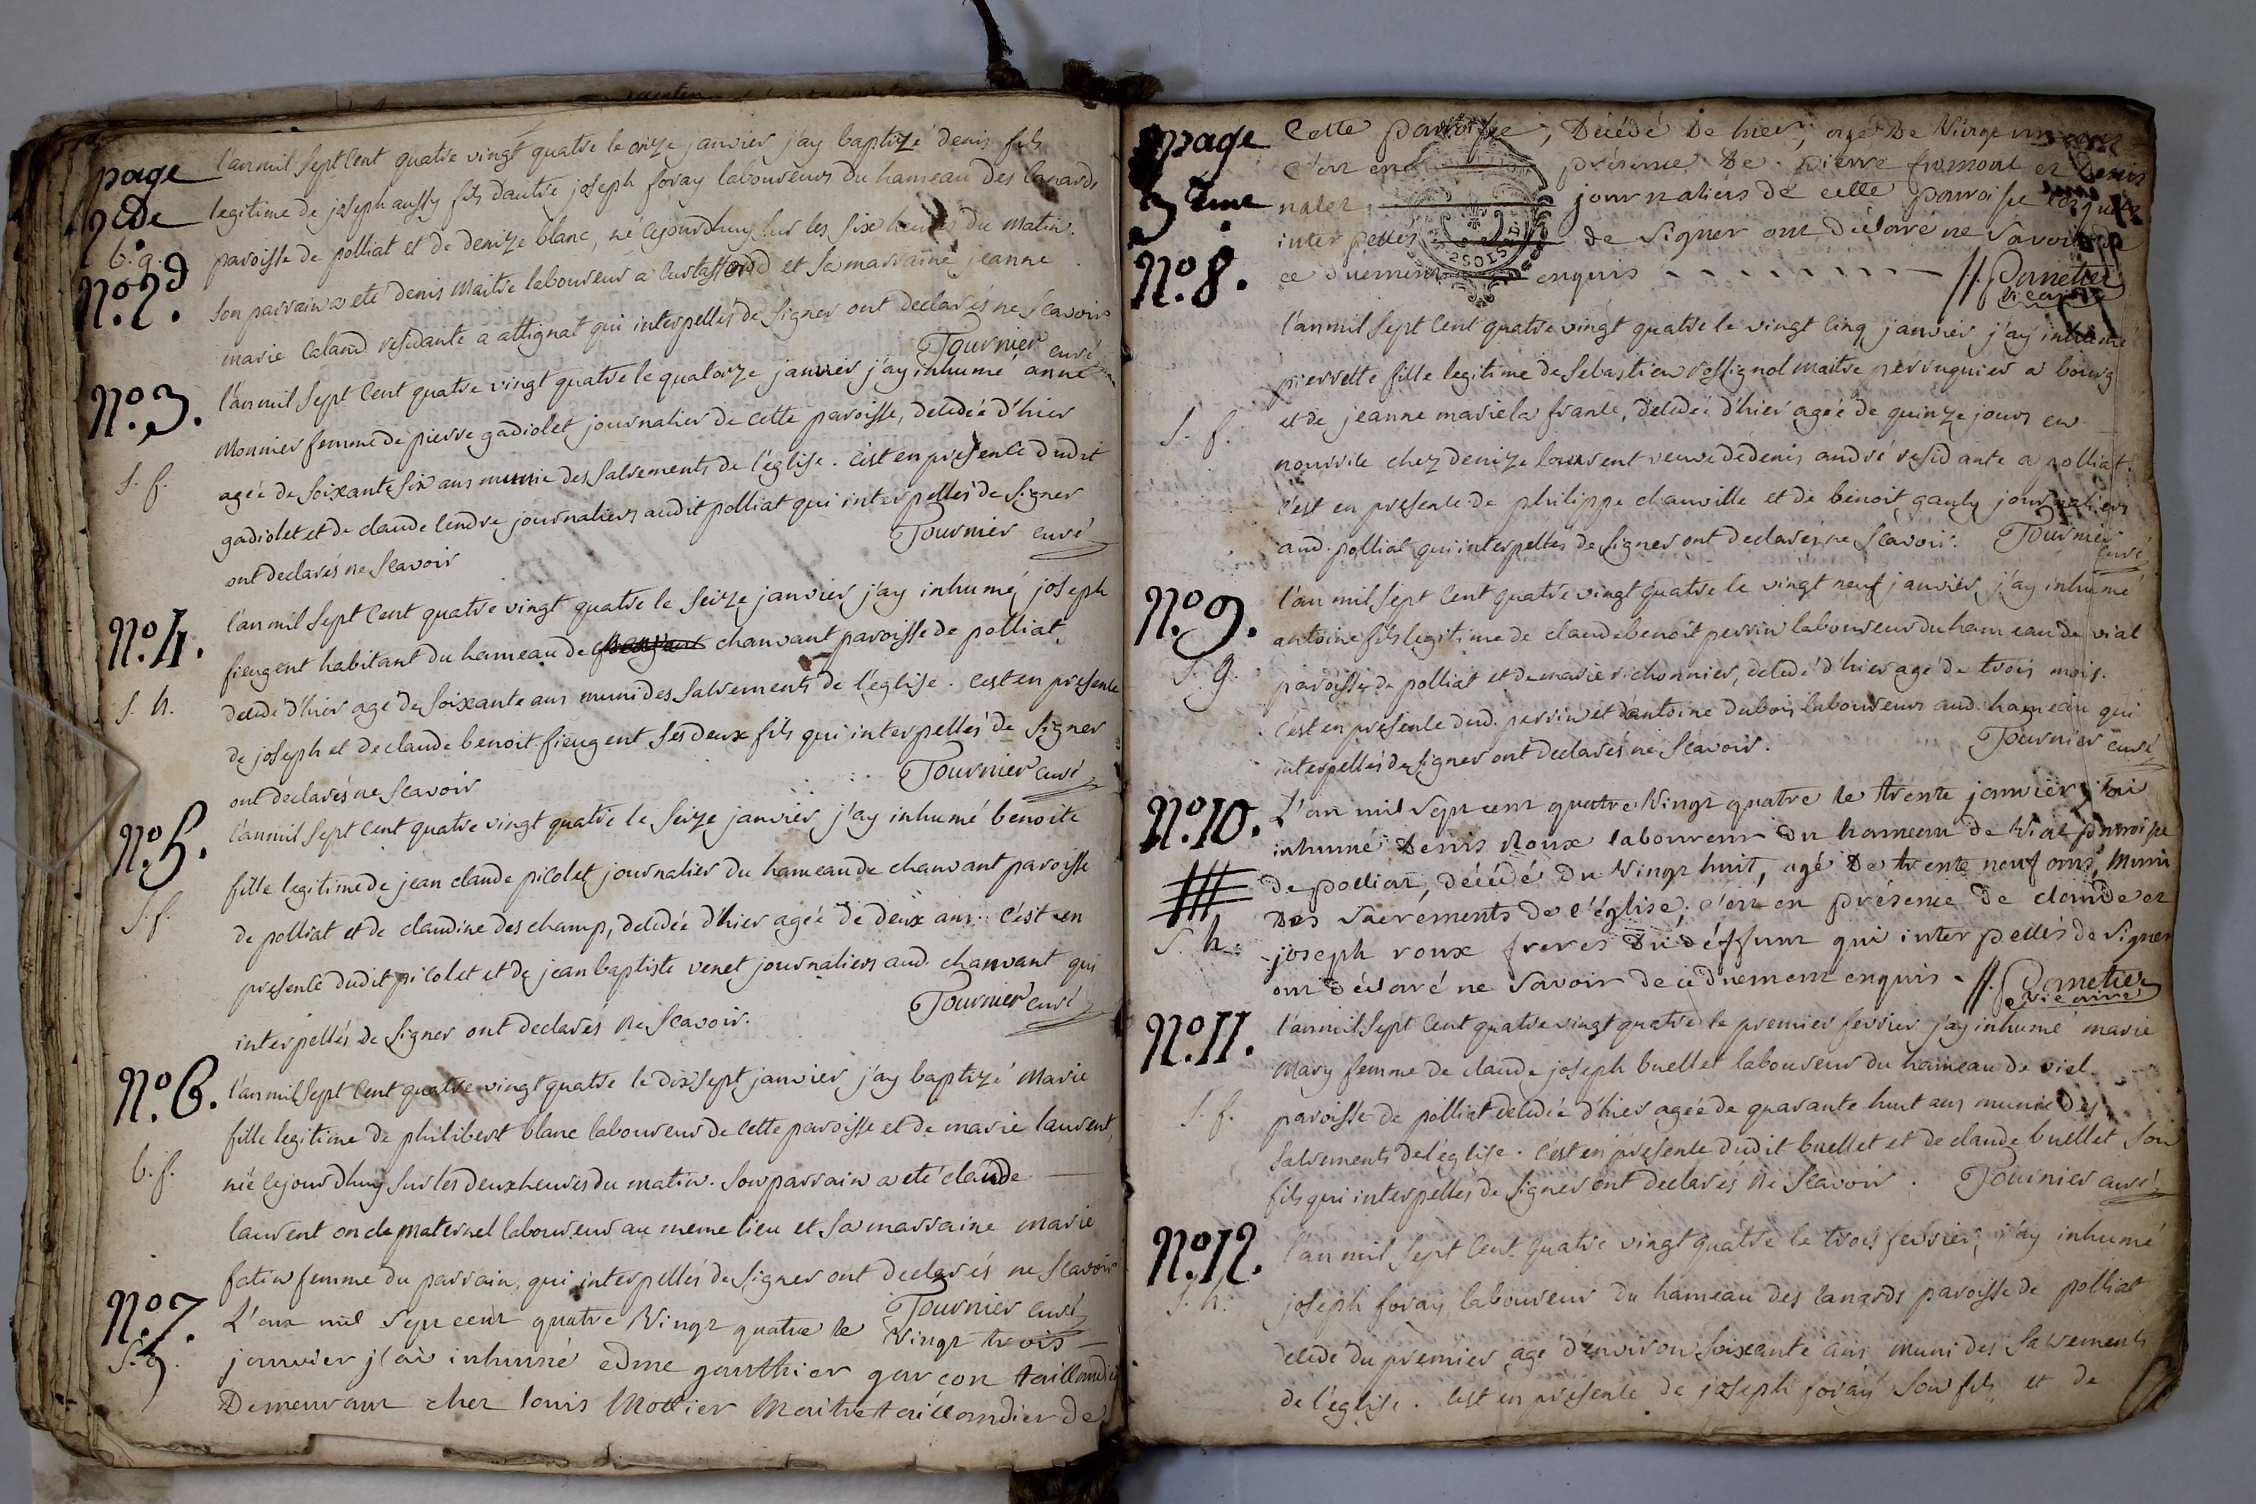 page
2de
b. g.
No. 2d
l'an mil sept cent quatre vingt quatre le onze janvier j'ay baptizé denis fils
legitime de joseph aussy fils dautre joseph foray laboureurs du hameau des canards
paroisse de polliat et de denize blanc, né cejourdhuy sur les six heures du matin.
son parrain a eté denis maitre laboureur a et sa marraine jeanne
marie caland residante a attignat qui interpellés de signer ont declarés ne scavoir
Tournier curé
No. 3.
s. f.
l'an mil sept cent quatre vingt quatre le quatorze janvier j'ay inhumé anne
Monnier femme de pierre gadiolet journalier de cette paroisse, decedée d'hier
agée de soixante six ans munie des sacrements de l'église. c'est en presence dudit
gadiolet et de claude cendre journaliers audit polliat qui interpellés de signer
ont declarés ne scavoir
Tournier curé
No. 4.
s. h.
l'an mil sept cent quatre vingt quatre le seize janvier j'ay inhumé joseph
fieugent habitant du hameau de chanvant paroisse de polliat,
decedé d'hier agé de soixante ans muni des sacrements de l'église. c'est en presence
de joseph et de claude benoit fieugent ses deux fils qui interpellés de signer
ont declarés ne scavoir
Tournier curé
No. 5.
s. f.
l'an mil sept cent quatre vingt quatre le seize janvier j'ay inhumé benoite
fille legitime de jean claude picolet journalier du hameau de chanvant paroisse
de polliat et de claudine des champ, decedée d'hier agée de deux ans. c'est en
presence dudit picolet et de jean baptiste venet journaliers aud. chanvant qui
interpellés de signer ont declarés ne scavoir.
Tournier curé
No. 6.
b. f.
l'an mil sept cent quatre vingt quatre le dix sept janvier j'ay baptizé Marie
fille legitime de philibert blanc laboureur de cette paroisse et de marie laurent,
née cejourdhuy sur les deux heures du matin. son parrain a eté claude
laurent oncle maternel laboureur au meme lieu et sa marraine marie
femme du parrain, qui interpellés de signer ont declarés ne scavoir
Tournier curé
No. 7.
s. g.
L'an mil sept cent quatre vingt quatre le vingt trois
janvier j'ai inhumé edme gauthier garçon taillandier
Demeurant chez louis Mollier Maitre taillandier de
page
3eme
No. 8.
cette paroisse, Décédé de hier, agé De vingt un ans
c'est en présence De pierre fromont et Denis
journaliers de cette paroisse lesquels
interpellés de signer ont déclaré ne savoir de
ce duement enquis
Pometier
vicaire
s. f.
l'an mil sept cent quatre vingt quatre le vingt cinq janvier j'ay inhumé
pierrette fille legitime de sebastien rossignol maitre perruquier a bourg
et de jeanne marie la france, decedée d'hier agée de quinze jours en
nourrice chez denize laurent veuve de denis andré residante a polliat.
c'est en presence de philippe chanville et de benoit gauly journaliers
aud. polliat qui interpellés de signer ont declarés ne scavoir. Tournier
curé
No. 9.
s. g.
l'an mil sept cent quatre vingt quatre le vingt neuf janvier, j'ay inhumé
antoine fils legitime de claude benoit perrin laboureur du hameau de vial
paroisse de polliat et de marie richonnier, decedé d'hier agé de trois mois.
c'est en presence dud. perrin et d'antoine dubois laboureurs aud. hameau qui
interpellés de signer ont declarés ne scavoir.
Tournier curé
No. 10.
s. h.
L'an mil sept cent quatre vingt quatre le trente janvier j'ai
inhumé Denis Roux laboureur du hameau de vial paroisse
de polliat, décédé du vingt huit, agé De trente neuf ans, Muni
Des sacrements de l'église; c'est en présence de claude et
joseph roux freres Du déffunt qui interpellés de signer
ont déclaré ne savoir de ce duement enquis. Pometier
vicaire
No. 11.
s. f.
l'an mil sept cent quatre vingt quatre le premier fevrier j'ay inhumé marie
Mary femme de claude joseph buellet laboureur du hameau de viel
paroisse de polliat decedée d'hier agée de quarante huit ans munie des
sacrements de l'église. c'est en presence dudit buellet et de claude buellet son
fils qui interpellés de signer ont declarés ne scavoir. Tournier curé
No. 12.
s. h.
l'an mil sept cent quatre vingt quatre le trois fevrier, j'ay inhumé
joseph foray laboureur du hameau des canards paroisse de polliat
decedé du premier agé d'environ soixante ans muni des sacrements
de l'église. c'est en presence de joseph foray son fils et de